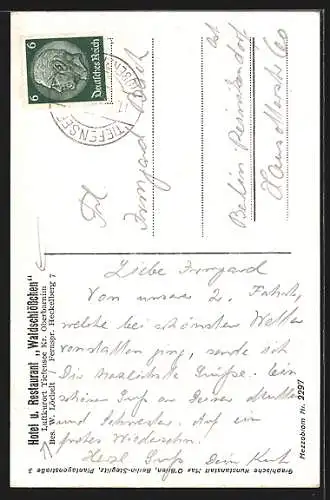 6
6
Deutsches Reich
TIEFENSEE
Frl.
Irmgard
Berlin
Hotel u. Restaurant „Waldschlößchen“
Luftkurort Tiefensee Kr. Oberbarnim
Bes. W. Löchelt Fernspr. Heckelberg 7
Liebe Irmgard
Von unserer 2. Fahrt,
welche bei schönsten Wetter
vonstatten ging, sende ich
Dir die herzlichsten Grüße. Ein
schönen Gruß an Deine Mutter
und Schwester. Auf ein
frohes Wiedersehn.
Herzl. Gruß Dein Kurt
Graphische Kunstanstalt Max O'Brien, Berlin-Steglitz, Plantagenstraße
Mezzobrom Nr. 2297